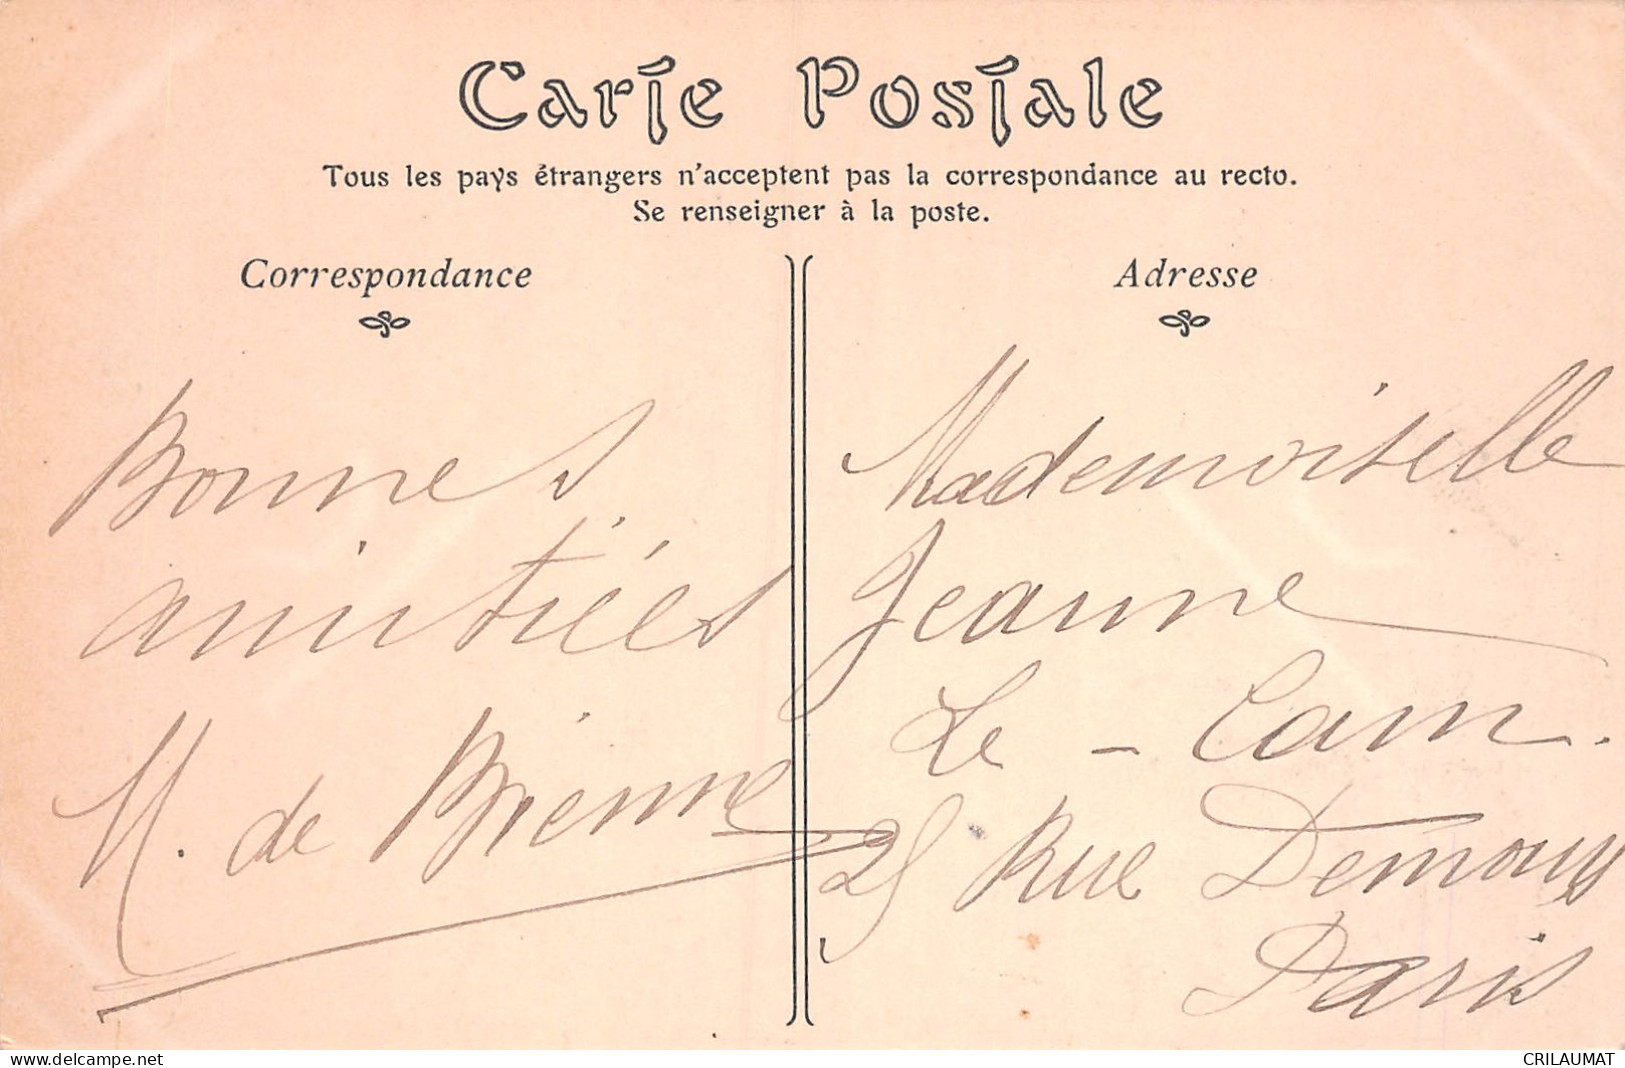 Carte Postale
Tous les pays étrangers n'acceptent pas la correspondance au recto.
Se renseigner à la poste.
Correspondance
Bonnes
amitiées
M. de Brienne
Adresse
Mademoiselle
Jeanne
Le - Cam.
25 Rue Demours
Paris
delcampe.net
CRILAUMAT